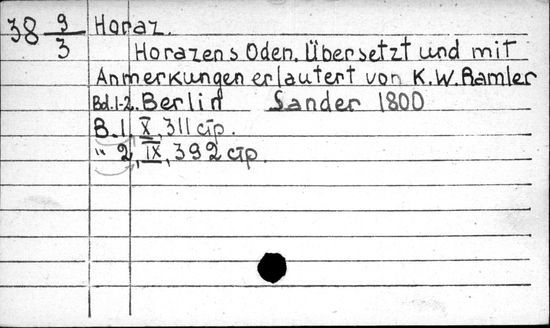 38 9/3 Horaz.
Horazens Oden. Übersetzt und mit
Anmerkungen erlautert von K.W. Ramler
Bd.1-2. Berlin Sander 1800
B.1, X, 311 стр.
" 2, IX, 392 стр.